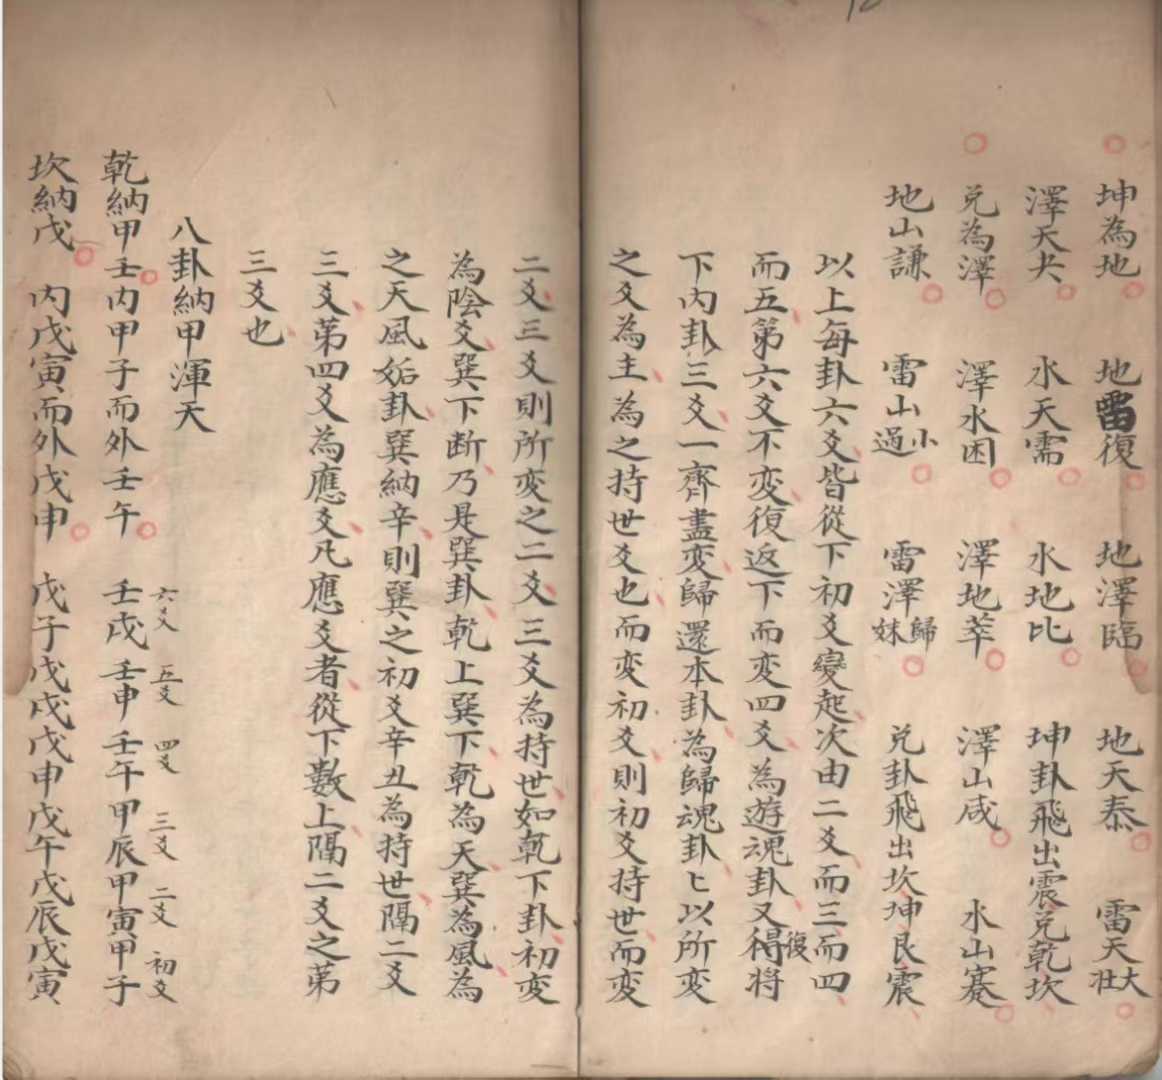 坤為地 地雷復 地澤臨 地天泰 雷天大壯
澤天夬 水天需 水地比 坤卦飛出震兌乾坎
兌為澤 澤水困 澤地萃 澤山咸 水山蹇
地山謙 雷山小過 雷澤歸妹 兌卦飛出坎坤艮震
以上每卦六爻皆從下初爻變起次由二爻而三而四
而五第六爻不変復返下而変四爻為遊魂卦又得復將
下內卦三爻一齊盡変歸還本卦為歸魂卦匕以所变
之爻為主為之持世爻也而变初爻則初爻持世而変
二爻三爻則所変之二爻三爻為持世如乾下卦初変
為陰爻巽下断乃是巽卦乾上巽下乾為天巽為風為
之天風姤卦巽納辛則巽之初爻辛丑為持世隔二爻
三爻第四爻為應爻凡應爻者從下數上隔二爻之第
三爻也
八卦納甲渾天
乾納甲壬內甲子而外壬午 壬戌壬申壬午甲辰甲寅甲子
六爻 五爻 四爻 三爻 二爻 初爻
坎納戊 內戊寅而外戊申 戊子戊戌戊申戊午戊辰戊寅